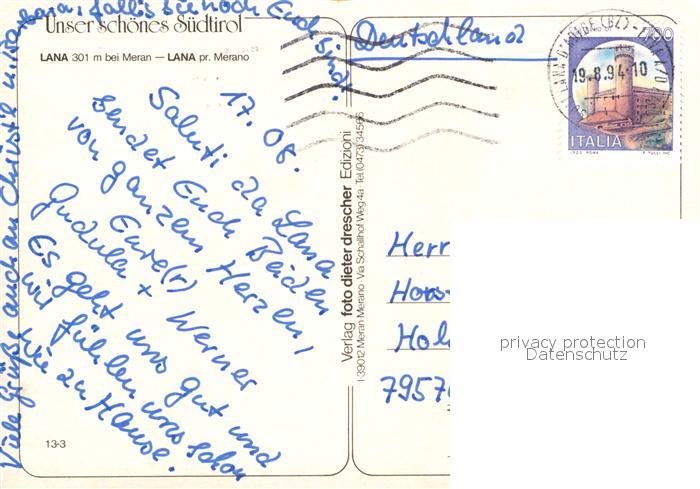 Unser schönes Südtirol
LANA 301 m bei Meran — LANA pr. Merano
17. 08.
Saluti da Lana
sendet Euch Beiden
von ganzem Herzen,
Eure(r)
Gudula + Werner
Es geht uns gut und
wir fühlen uns schon
wie zu Hause.
Viele Grüße auch an Christl u.
falls sie noch Euch
sind.
13-3
Verlag foto dieter drescher Edizioni
I-39012 Meran-Merano · Via Schallhof Weg 4a · Tel (0473) 34565
Deutschland
19.8.94-10
ITALIA
Herr
Hol
7957
privacy protection
Datenschutz